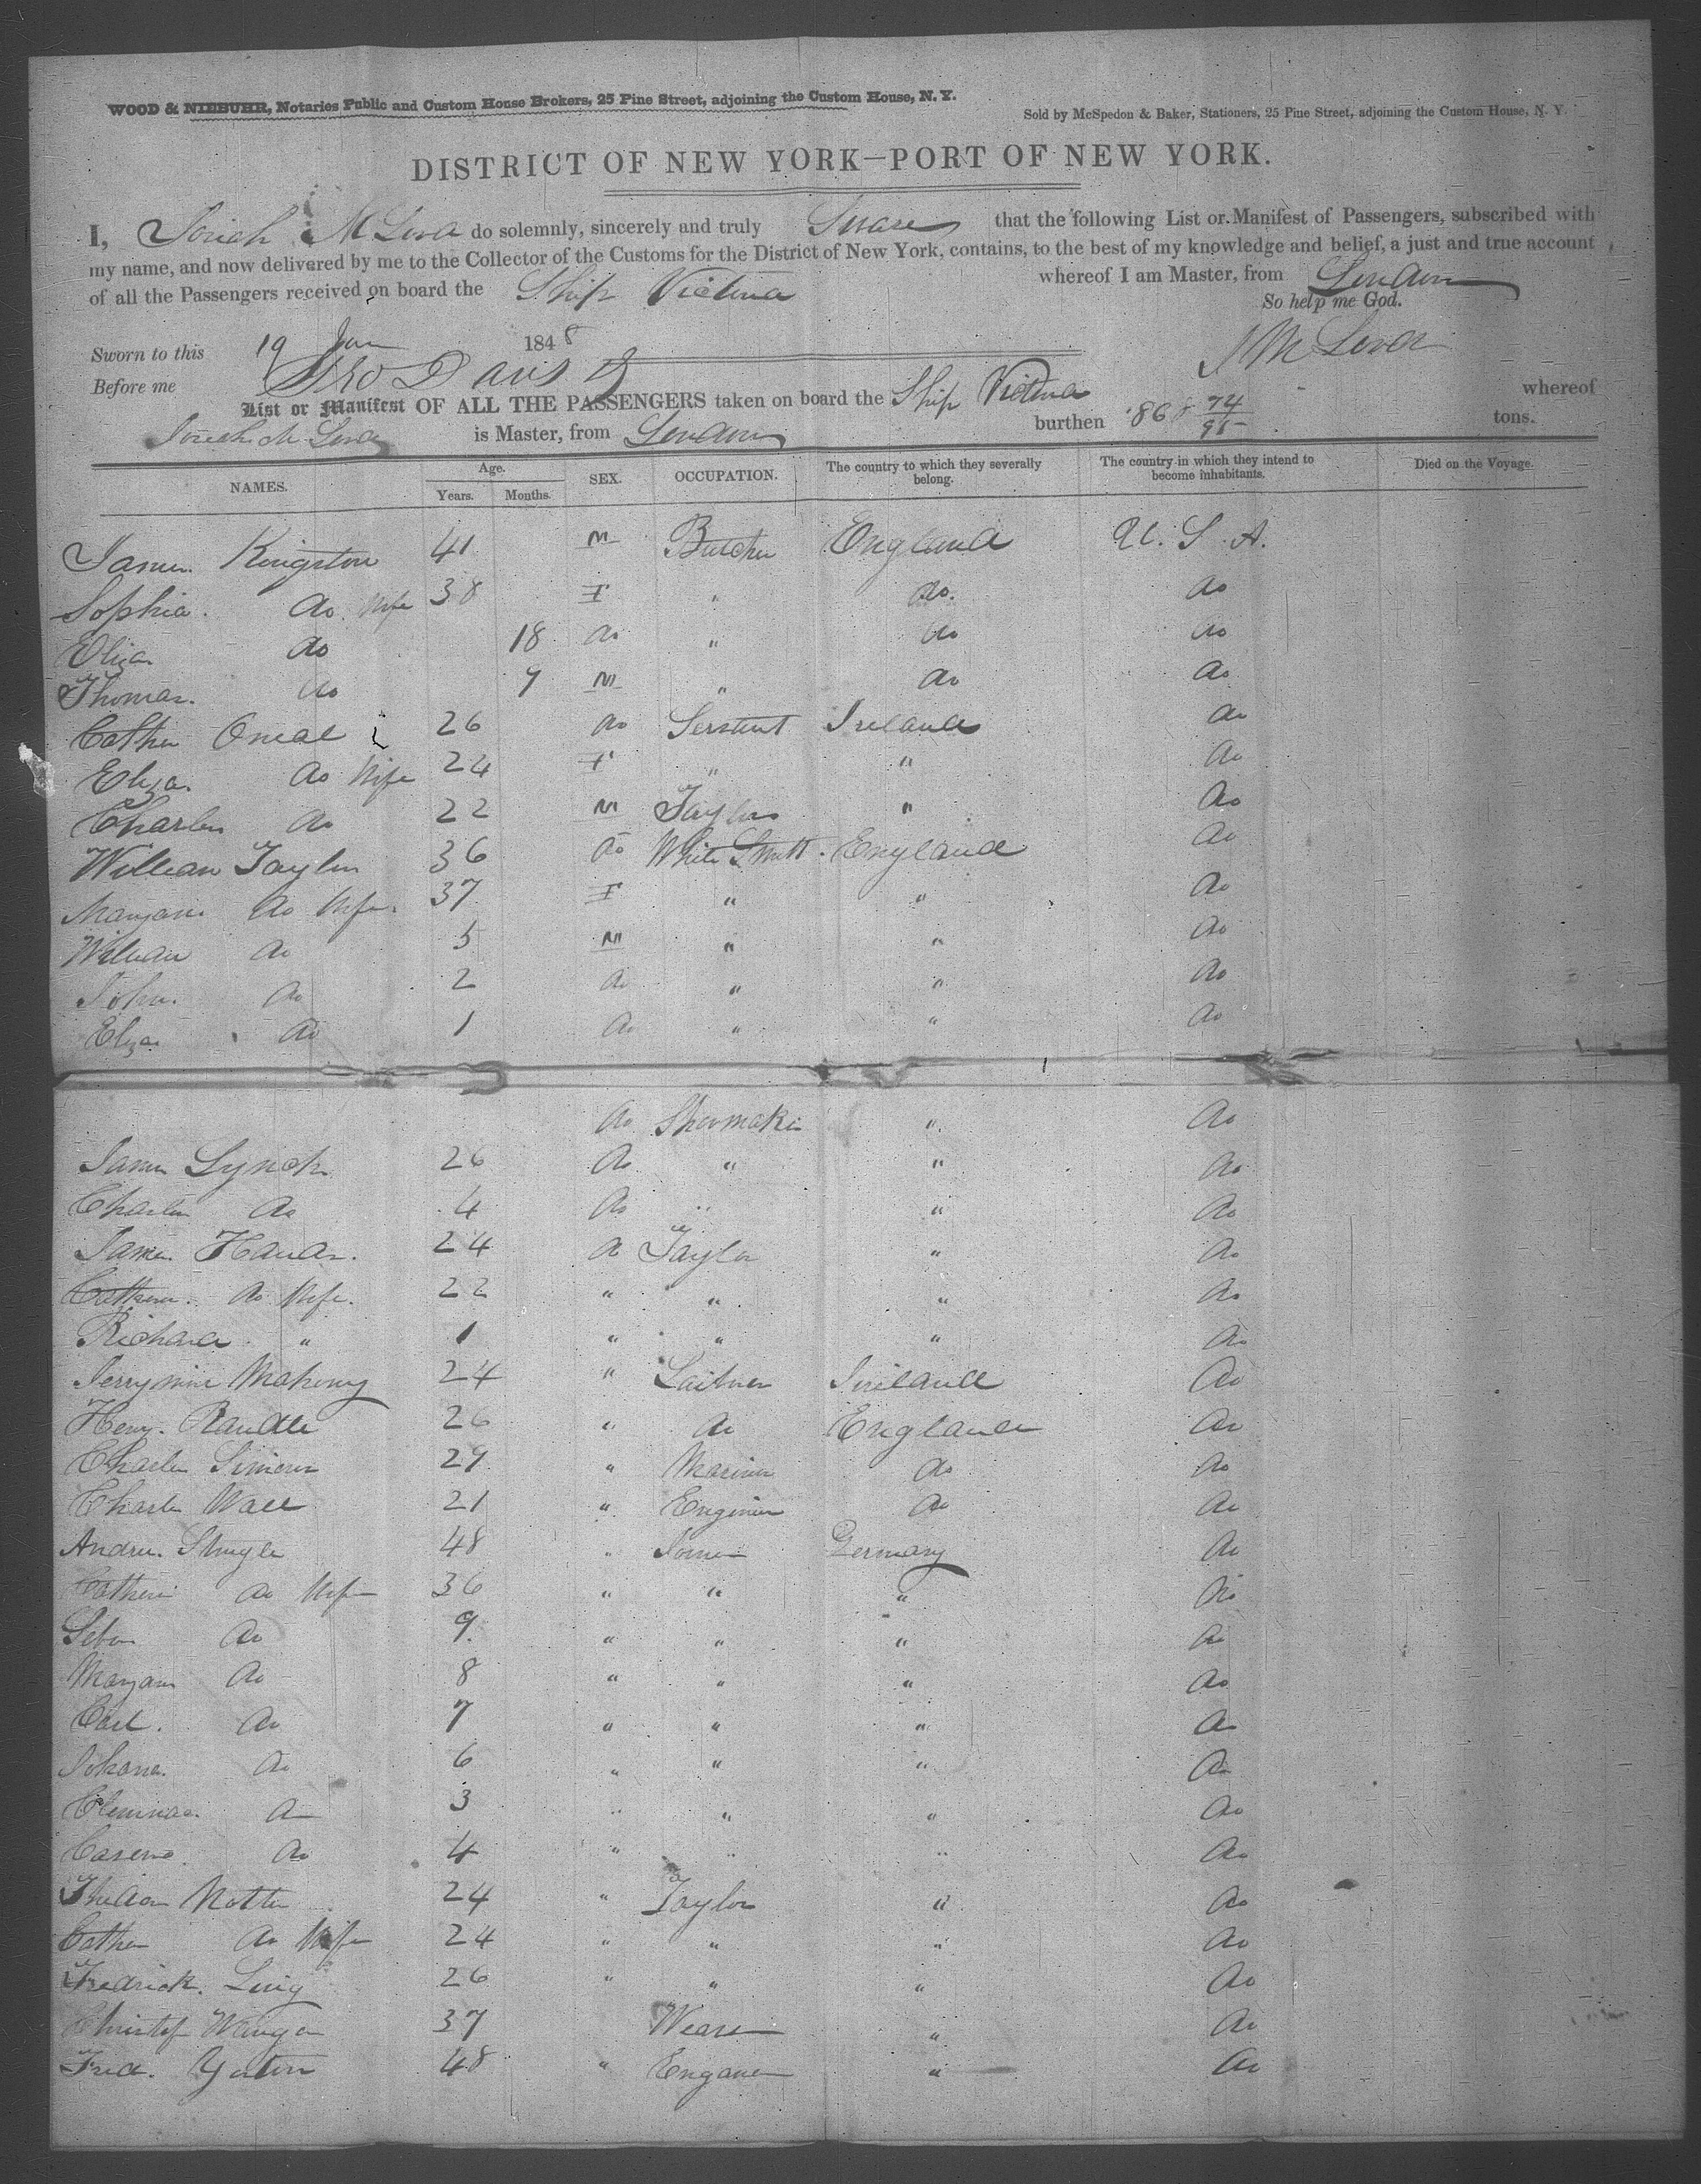 WOOD & NIEBUHR, Notaries Public and Custom House Brokers, 25 Pine Street, adjoining the Custom House, N. Y.
Sold by McSpedon & Baker, Stationers, 25 Pine Street, adjoining the Custom House, N. Y.
DISTRICT OF NEW YORK—PORT OF NEW YORK.
I, do solemnly, sincerely and truly Swear that the following List or Manifest of Passengers, subscribed with
my name, and now delivered by me to the Collector of the Customs for the District of New York, contains, to the best of my knowledge and belief, a just and true account
of all the Passengers received on board the Ship Victoria whereof I am Master, from London
So help me God.
Sworn to this 19 Jan 1848
Before me
List or Manifest OF ALL THE PASSENGERS taken on board the Ship Victoria whereof
is Master, from London burthen 868 74/95 tons.
NAMES. Age. Years. Months. SEX. OCCUPATION. The country to which they severally belong. The country in which they intend to become inhabitants. Died on the Voyage.
James Kingston 41 M Butcher England U. S. A.
Sophia do Wife 38 F " do do
Eliza do 18 do " do do
Thomas do 9 M " do do
Oneal 26 do Servant Ireland do
Eliza do Wife 24 F " " do
Charles do 22 M Taylor " do
William Taylor 36 do White Smith England do
Maryann do Wife 37 F " " do
William do 5 M " " do
John do 2 do " " do
Eliza do 1 do " " do
do Shoemaker " do
James Lynch 26 do " " do
Charles do 4 do " " do
James 24 do Taylor " do
do Wife 22 " " " do
Richard " 1 " " " do
Mahony 24 " Ireland do
Henry Randle 26 " do England do
Charles 29 " Mariner do do
Charles Wall 21 " Engineer do do
Andrew 48 " Joiner Germany do
do Wife 36 " " " do
do 9 " " " do
Maryann do 8 " " " do
Carl do 7 " " " do
do 6 " " " do
do 3 " " " do
do 4 " " " do
24 " Taylor " do
do Wife 24 " " " do
Fredrick 26 " " " do
37 " do
Fred. 48 " " do